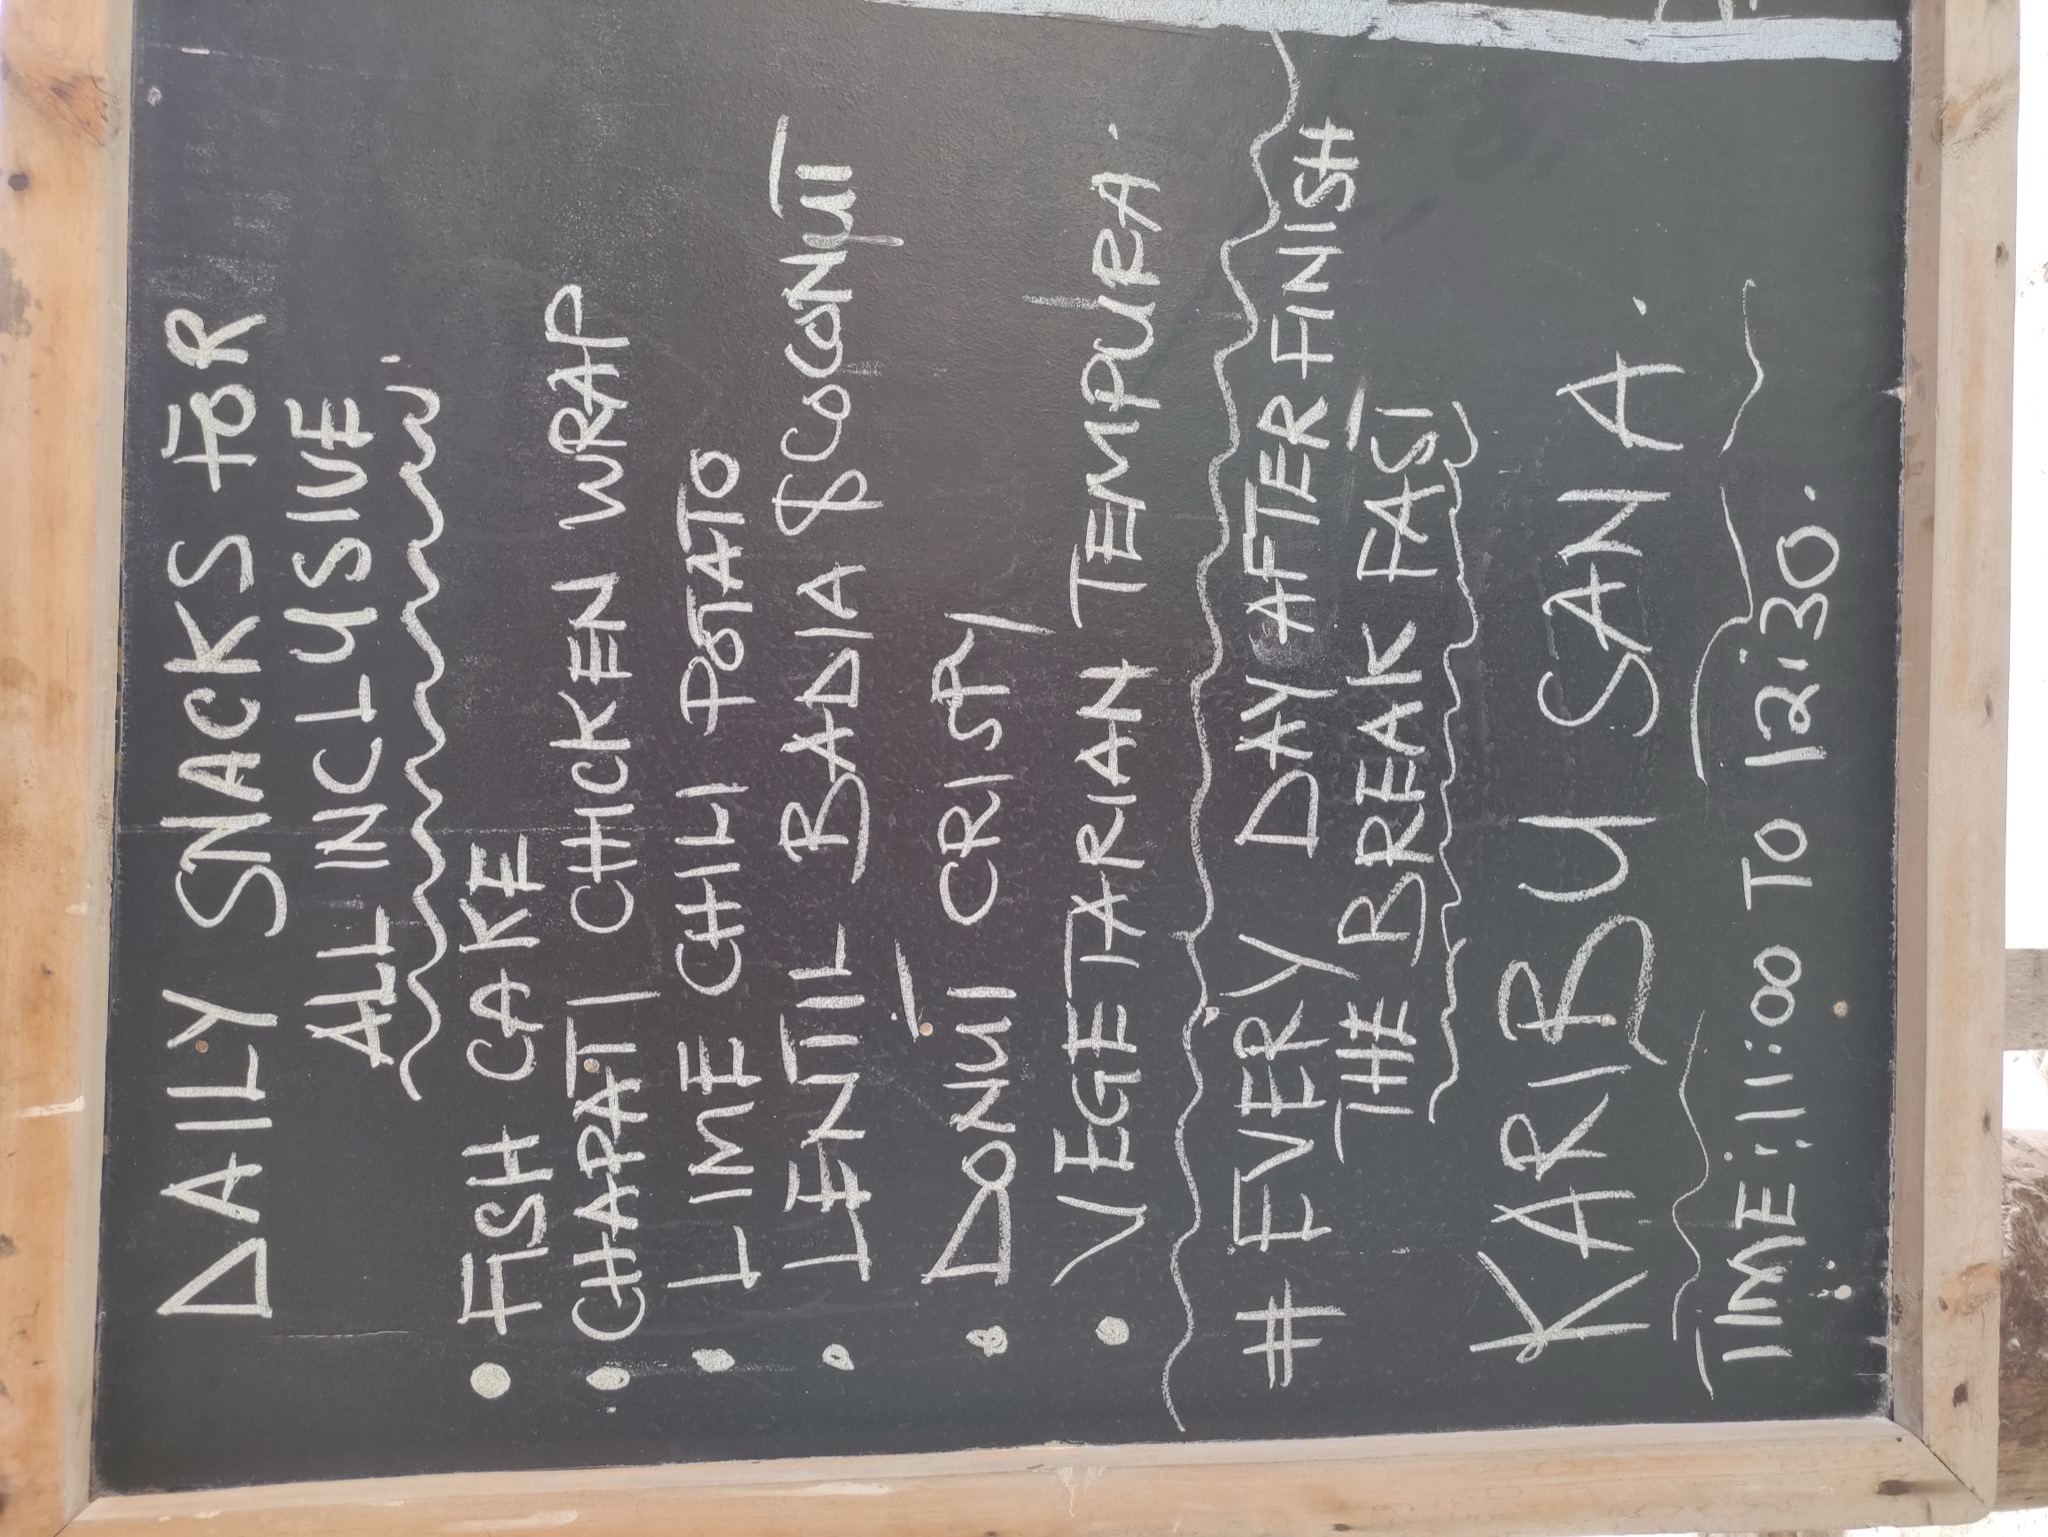 DAILY SNACKS FOR
ALL INCLUSIVE
• FISH CAKE
• CHAPATI CHICKEN WRAP
• LIME CHILI POTATO
• LENTIL BADIA & COCONUT
• DONUT CRISPY
• VEGETARIAN TEMPURA.
# EVERY DAY AFTER FINISH
THE BREAK FAST
KARIBU SANA.
TIME: 11:00 TO 12:30.